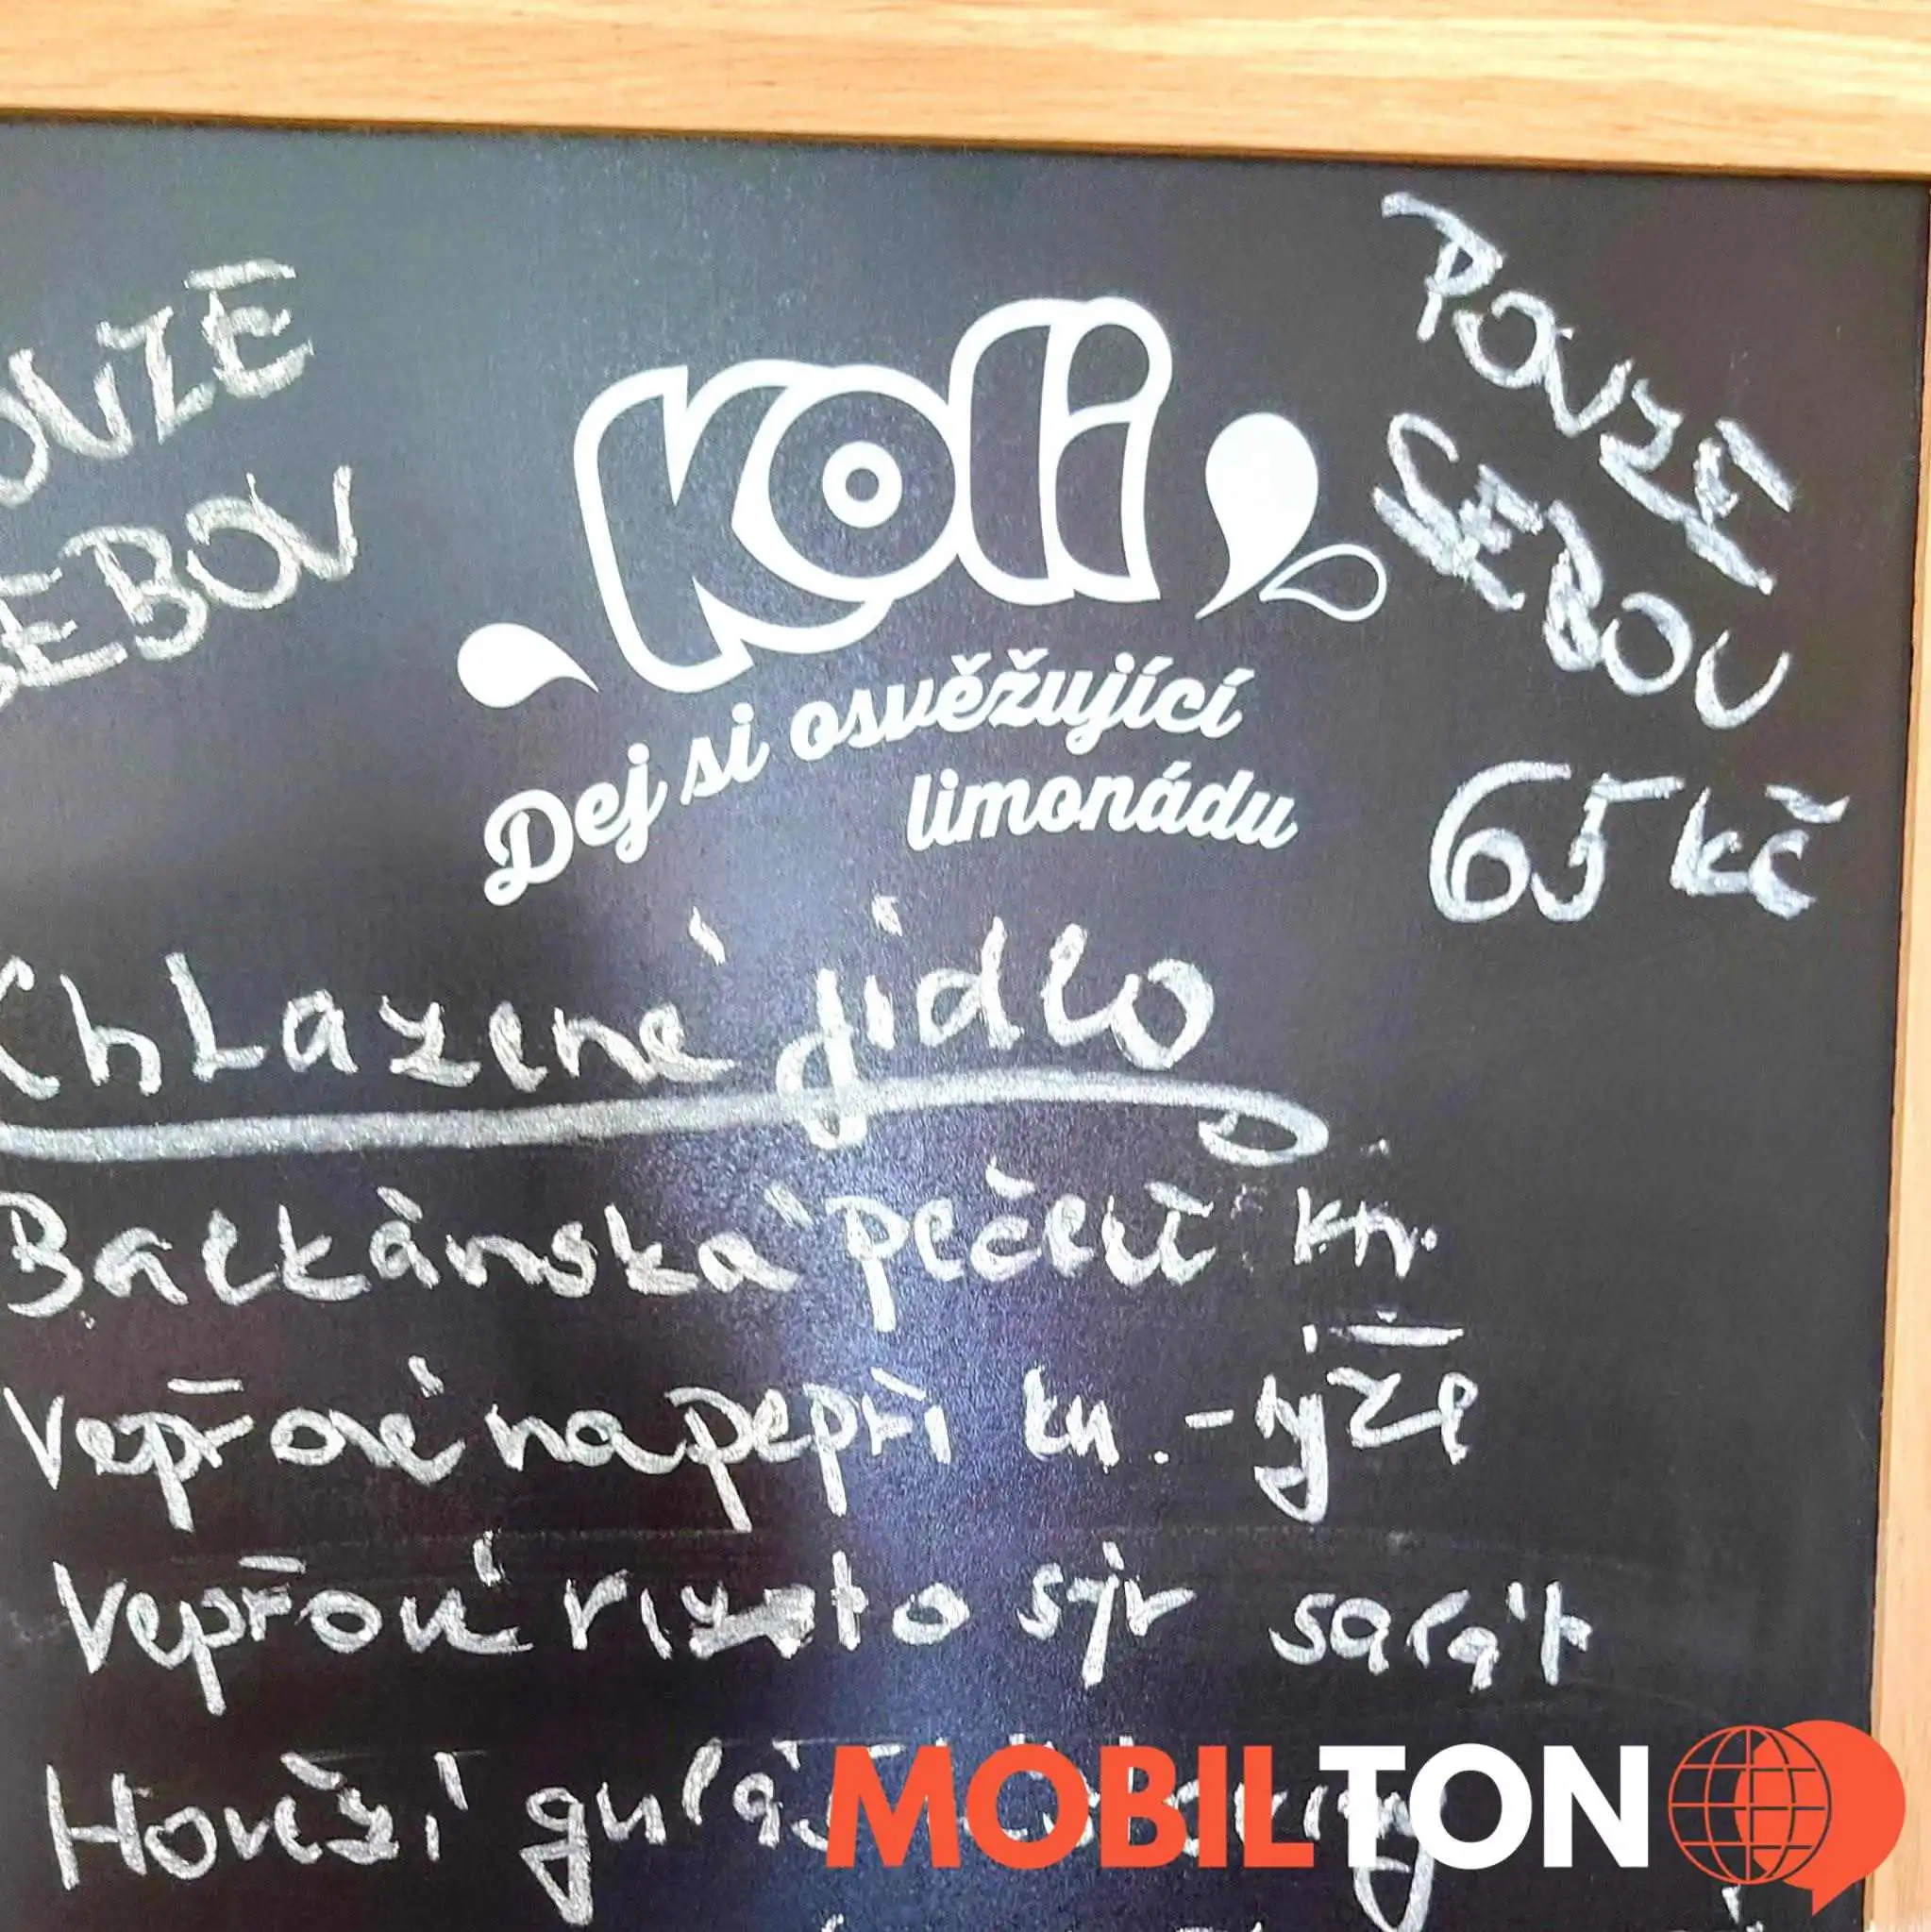 POUZE
SEBOU
65 kč
OUZE
SEBOU
Koli
Dej si osvěžující
limonádu
Chlazené jídlo
Balkánská pečeně kn.
Vepřové na pepři kn. - rýže
Vepřové rizoto sýr salát
Hovězí guláš
MOBILTON